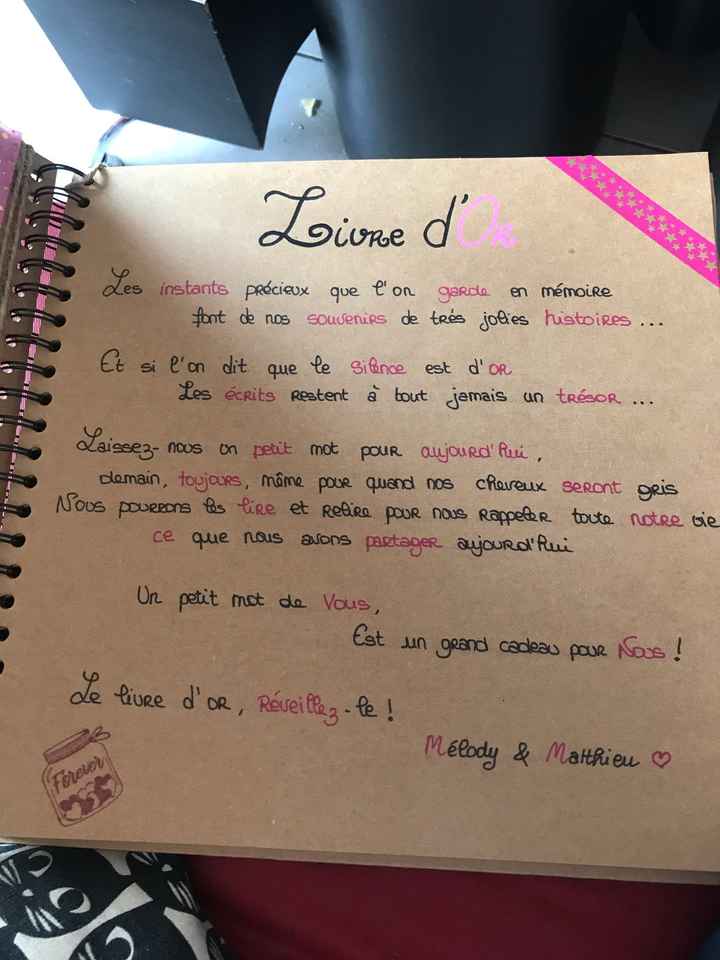 Livre d'Or
Les instants précieux que l'on garde en mémoire
font de nos souvenirs de très jolies histoires ...
Et si l'on dit que le silence est d'or
Les écrits restent à tout jamais un trésor ...
Laissez-nous un petit mot pour aujourd'hui,
demain, toujours, même pour quand nos cheveux seront gris
Nous pourrons les lire et relire pour nous rappeler toute notre vie
ce que nous avons partager aujourd'hui
Un petit mot de Vous,
Est un grand cadeau pour Nous !
Le livre d'or, Réveillez-le !
Mélody & Matthieu ♡
Forever